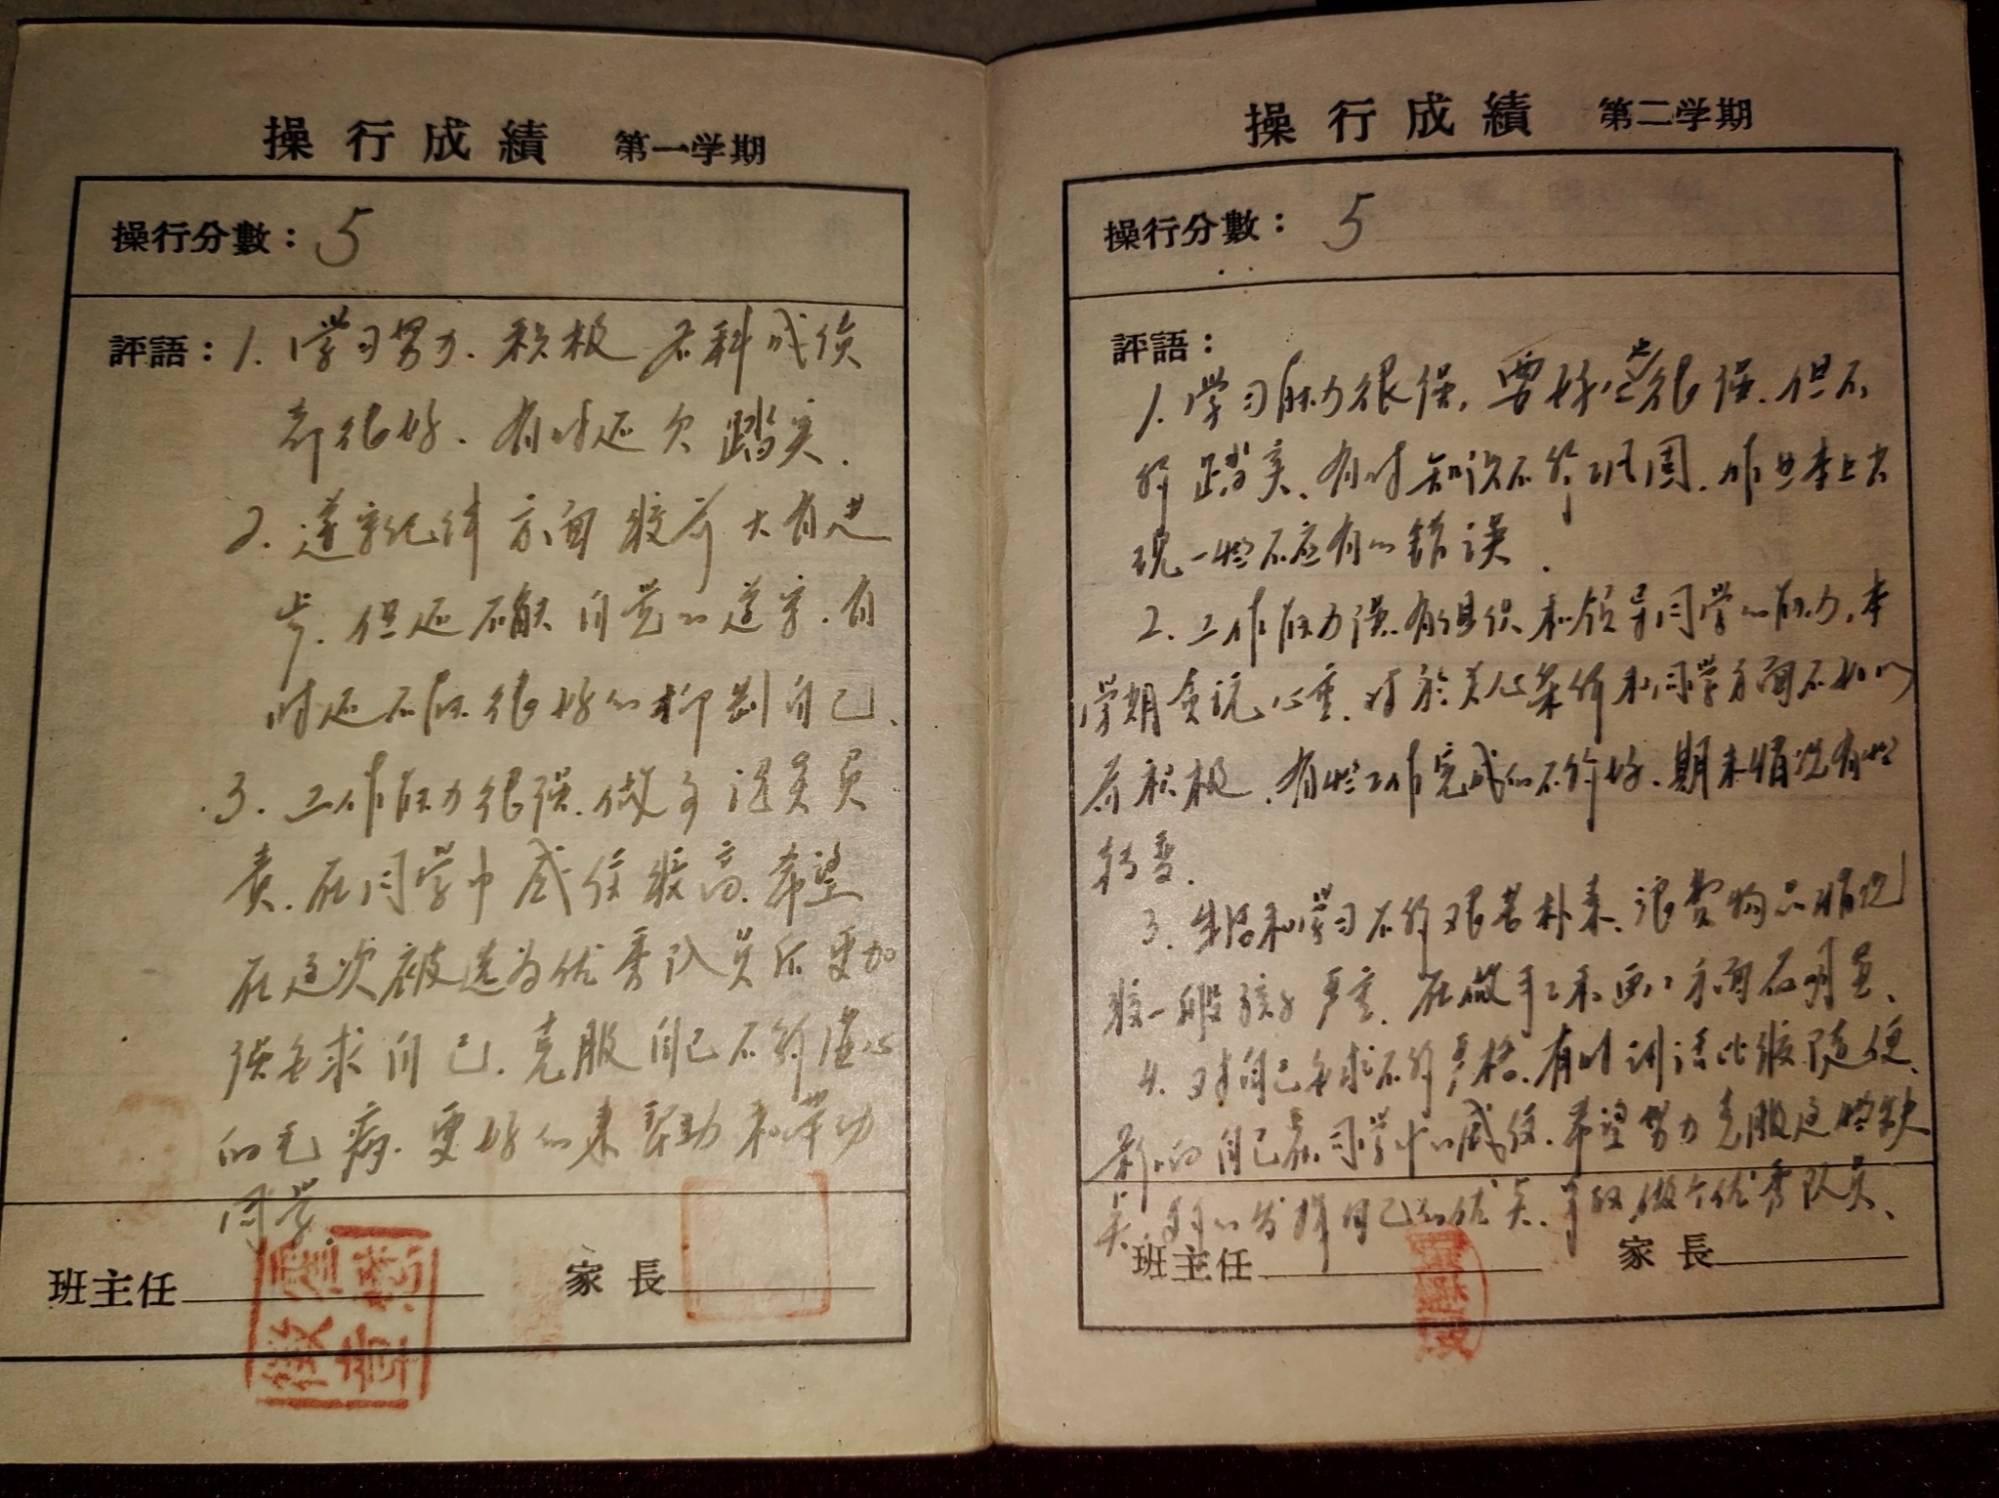 操行成績 第一学期
操行分數：5
評語：1. 学习努力、积极 各科成绩
都很好、有时还欠踏实．
2. 遵守纪律方面较前大有进
步．但还不能自觉的遵守．有
时还不能很好的抑制自己、
3. 工作能力很强．做事认真负
责．在同学中威信较高．希望
在这次被选为优秀队员后更加
强要求自己．克服自己不够虚心
的毛病．更好的来帮助和带动
同学．
班主任 家長
操行成績 第二学期
操行分數：5
評語：
1. 学习能力很强，要好心很强．但不
够踏实、有时知识不够巩固．作业本上出
现一些不应有的错误．
2. 工作能力强．有组织和领导同学的能力，本
学期 心重．对於关心集体和同学方面不如以
前积极．有些工作完成的不够好．期末情况有些
转变．
3. 生活和学习不够艰苦朴素、浪费物品情况
较一般孩子严重．在做手工和画图方面 、
4. 对自己要求不够严格、有时讲话比较随便、
影响自己在同学中的威信．希望努力克服这些缺
点．更好的发揮自己的优点．争取做个优秀队员、
班主任 家長